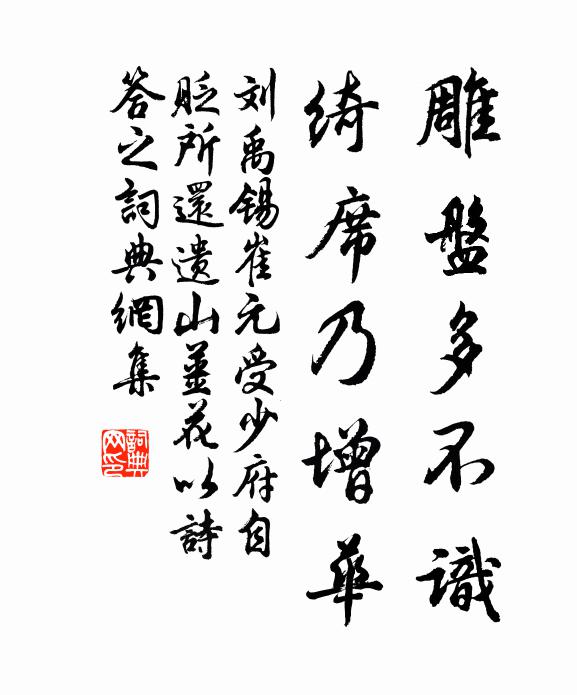 雕盤多不識
綺席乃增華
刘禹锡崔元受少府自
貶所還遺山薑花以詩
答之詞典網集
詞典
网印